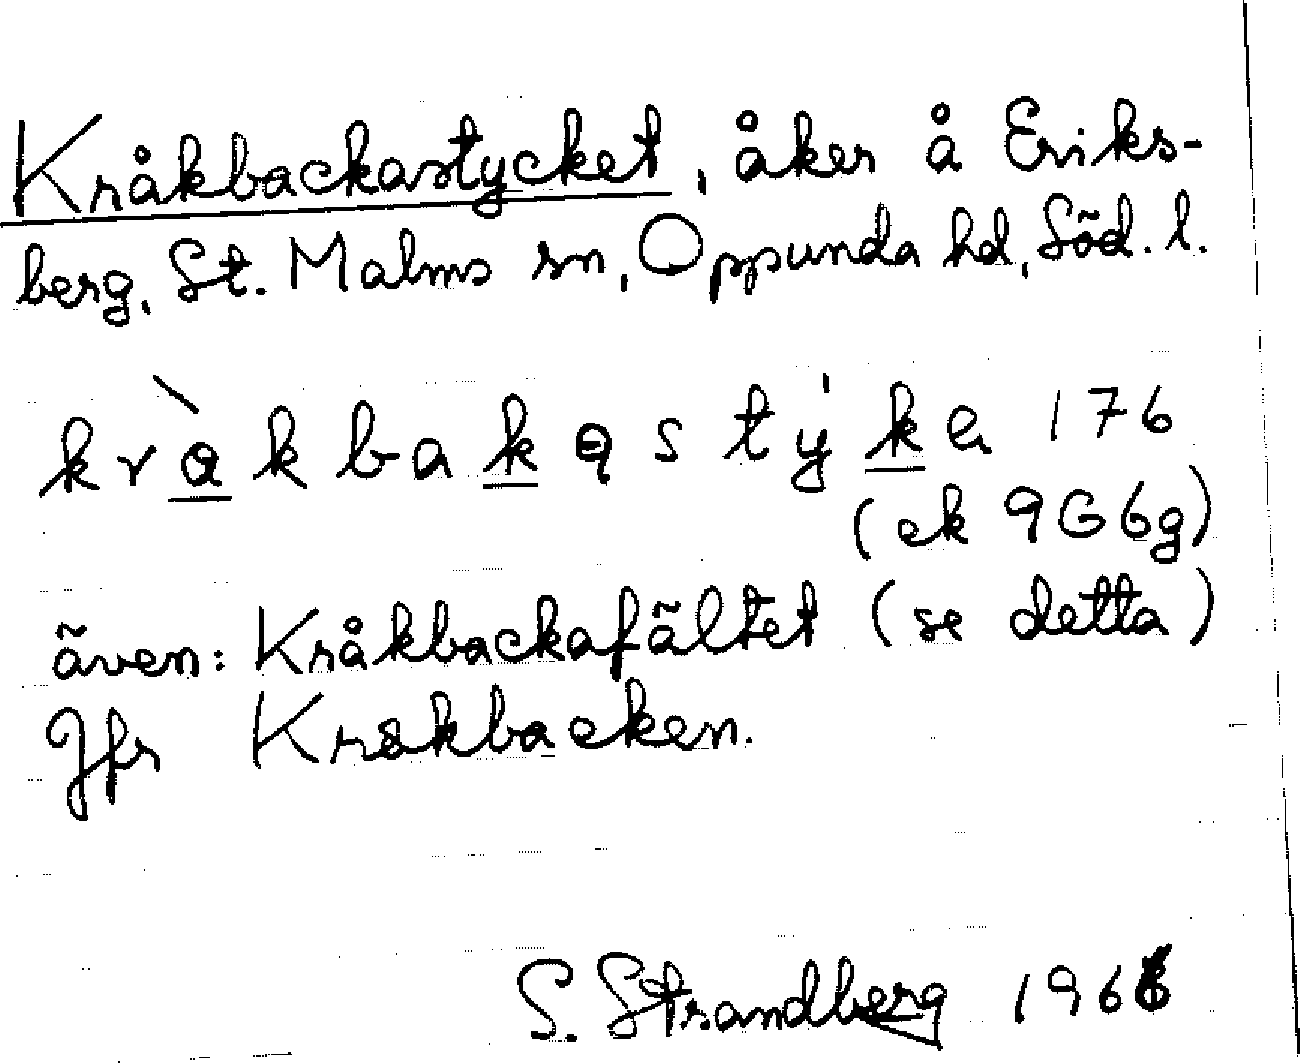 Kråkbackastycket, åker å Eriks-
berg, St. Malms sn, Oppunda hd, Söd. l.
kràkbakastýke 176
(ek 9G6g)
även: Kråkbackafältet (se detta)
Jfr Kråkbacken.
S. Strandberg 1966